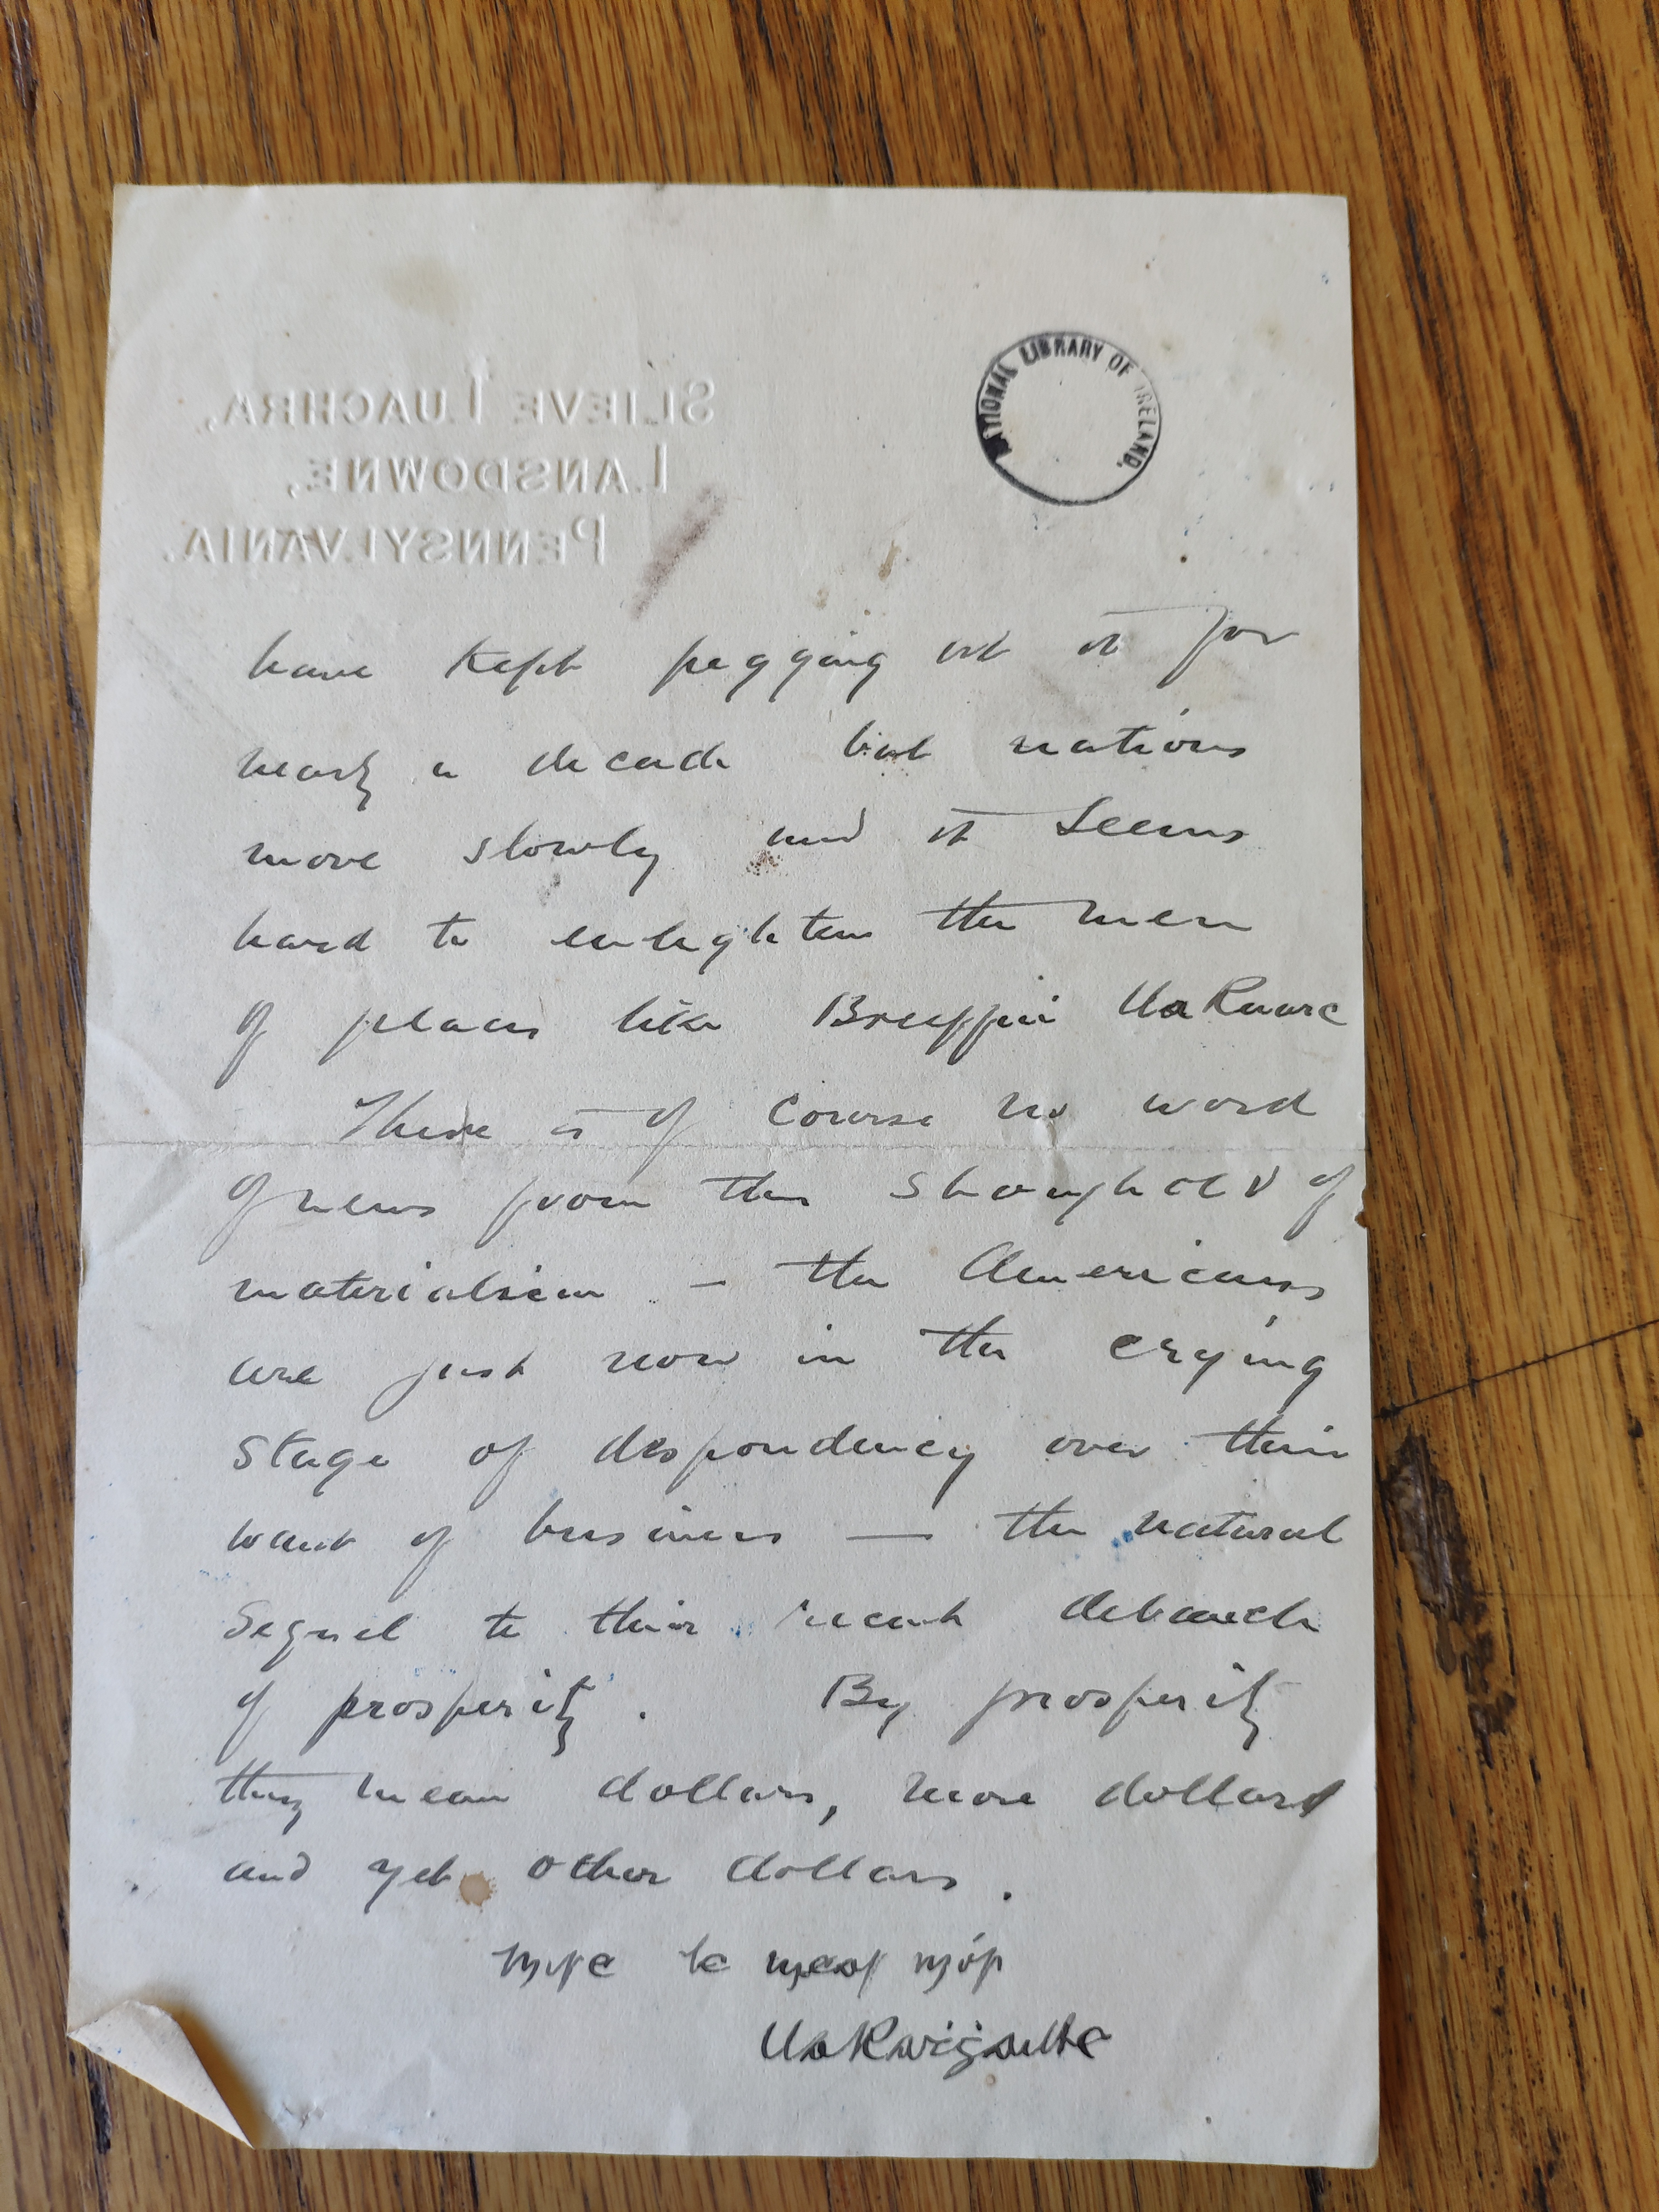 SLIEVE LUACHRA,
LANSDOWNE,
PENNSYLVANIA.
NATIONAL LIBRARY OF IRELAND.
have kept pegging at it for
nearly a decade but nations
move slowly and it seems
hard to enlighten the men
of places like Breiffni Ua Ruarc
There is of course no word
of news from this stronghold of
materialism – the Americans
are just now in the crying
stage of despondency over their
want of business — the natural
sequel to their recent debauch
of prosperity. By prosperity
they mean dollars, more dollars
and yet other dollars.
Mise le meas mór
Ua Raiġailliġ